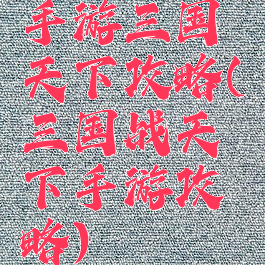 手游三国
天下攻略(
三国战天
下手游攻
略)